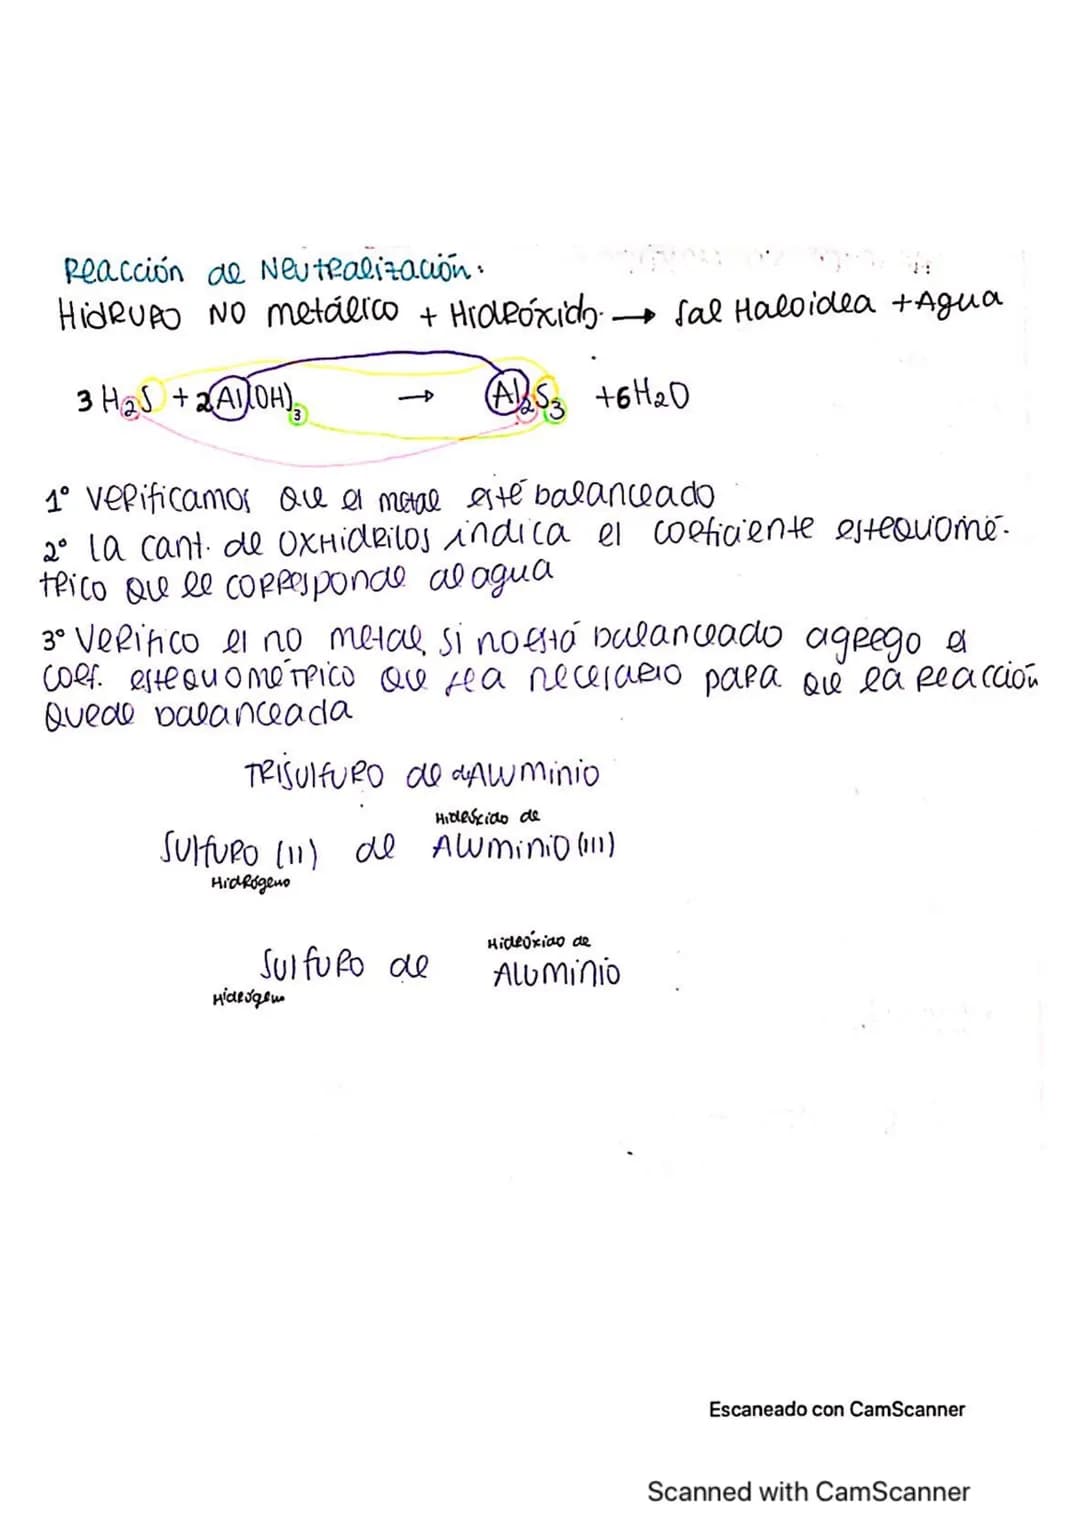 Reacción de Neutralización:
HidRURO NO metálico + Hidróxido. → Sal Haloidea + Agua
3 H2S + 2Al(OH)3 → Al2S3 + 6H2O
1° Verificamos que el metal esté balanceado
2° la cant. de OXHidRilos indica el coeficiente estequiomé-
trico que le corresponde al agua
3° Verifico el no metal, si no está balanceado agrego el
coef. estequométrico que sea necesario para que la reacción
quede balanceada
TRISULFURO de de ALUMINIO
Hidróxido de
SULFURO (II) de ALUMINIO (III)
Hidrógeno
Hidróxido de
Sulfuro de ALUMINIO
Hidrógeno
Escaneado con CamScanner
Scanned with CamScanner